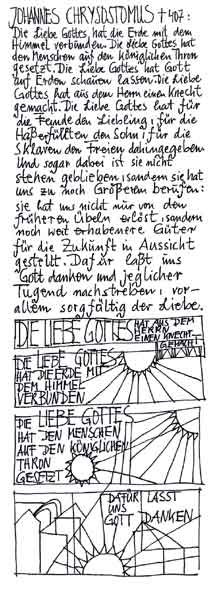 JOHANNES CHRYSOSTOMUS † 407:
Die Liebe Gottes hat die Erde mit dem
Himmel verbunden. Die Liebe Gottes hat
den Menschen auf den königlichen Thron
gesetzt. Die Liebe Gottes hat Gott
auf Erden schauen lassen. Die Liebe
Gottes hat aus dem Herrn einen Knecht
gemacht. Die Liebe Gottes hat für
die Feinde den Liebling, für die
Haßerfüllten den Sohn, für die
Sklaven den Freien dahingegeben
Und sogar dabei ist sie nicht
stehen geblieben, sondern sie hat
uns zu noch Größerem berufen:
sie hat uns nicht nur von den
früheren Übeln erlöst, sondern
noch weit erhabenere Güter
für die Zukunft in Aussicht
gestellt. Dafür laßt uns
Gott danken und jeglicher
Tugend nachstreben, vor-
allem sorgfältig der Liebe.
DIE LIEBE GOTTES HAT AUS DEM
HERRN
EINEN KNECHT
GEMACHT
DIE LIEBE GOTTES
HAT DIE ERDE MIT
DEM HIMMEL
VERBUNDEN
DIE LIEBE GOTTES
HAT DEN MENSCHEN
AUF DEN KÖNIGLICHEN
THRON
GESETZT
DAFÜR LASST
UNS
GOTT DANKEN